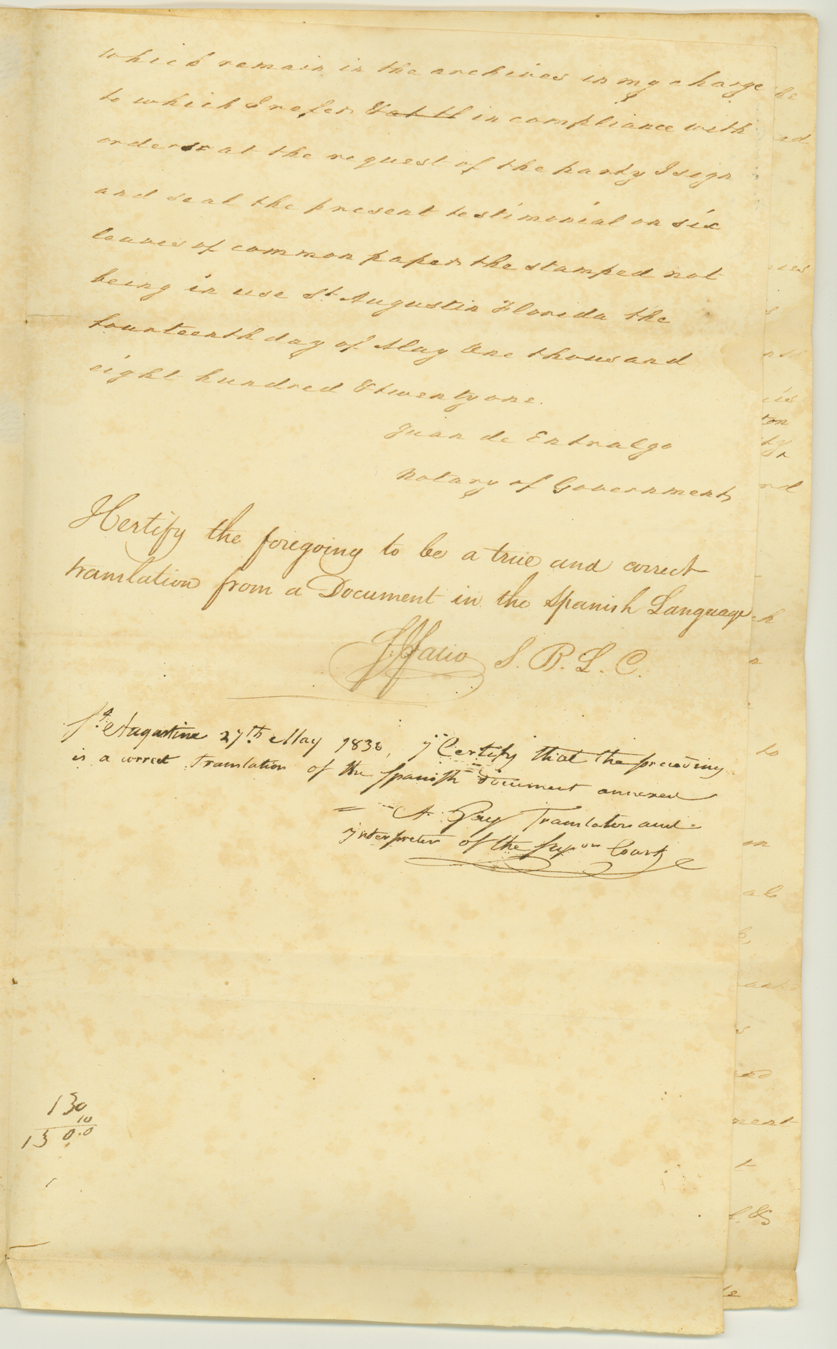 which remain in the archives in my charge
to which I refer & at th in compliance with
orders or at the request of the party I sign
and seal the present testimonial on six
leaves of common paper the stamped not
being in use St Augustin Florida the
fourteenth day of May One thousand
eight hundred & twenty one.
Juan de Entralgo
Notary of Government
I Certify the foregoing to be a true and correct
translation from a Document in the Spanish Language
S. B. L. C.
St Augustine 27th May 1830, I Certify that the preceding
is a correct Translation of the Spanish Document annexed
Translator and
interpreter of the Supor Court
130
10
130.0